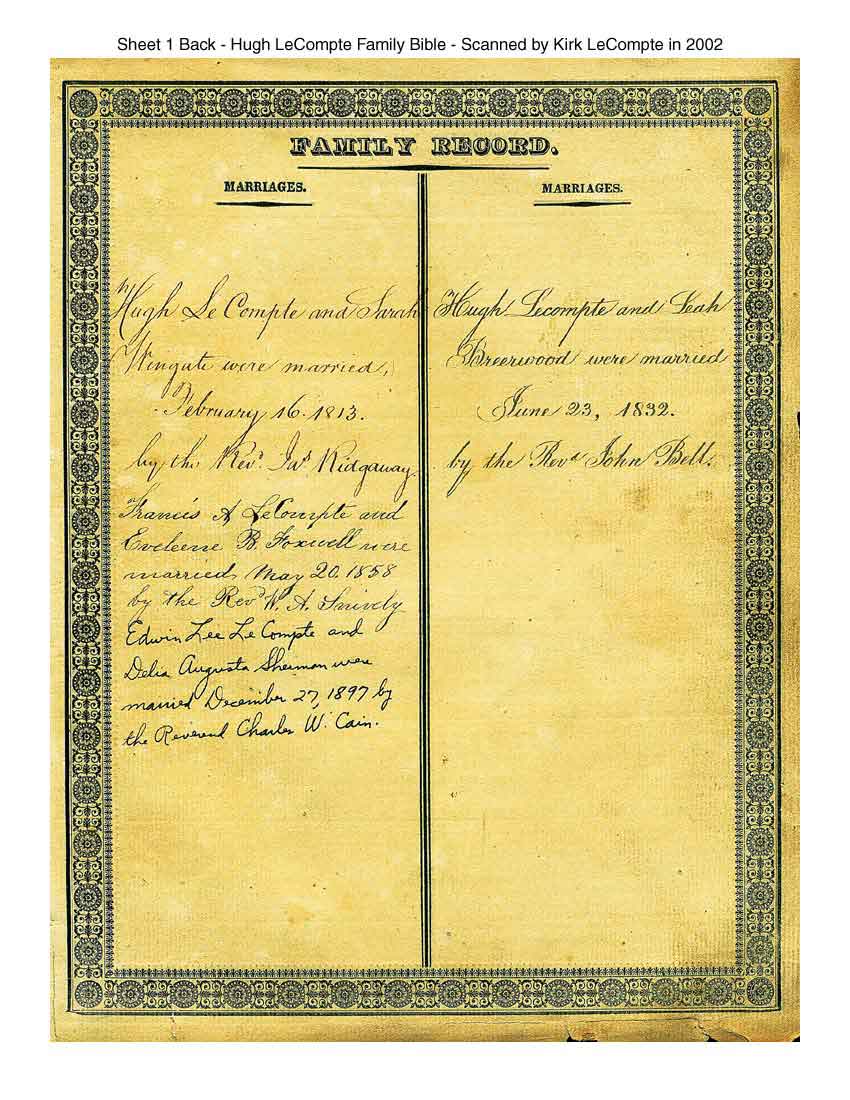 Sheet 1 Back - Hugh LeCompte Family Bible - Scanned by Kirk LeCompte in 2002
FAMILY RECORD.
MARRIAGES.
Hugh Le Compte and Sarah
Wingate were married,
February 16. 1813.
by the Revd. Jas Ridgaway.
Francis A LeCompte and
Eveleene B. Foxwell were
married May 20. 1858
by the Revd W. A. Snively
Edwin Lee Le Compte and
Delia Augusta Sherman were
married December 27, 1897 by
the Reverend Charles W. Cain.
MARRIAGES.
Hugh Lecompte and Leah
Breerwood were married
June 23, 1832.
by the Revd John Bell.